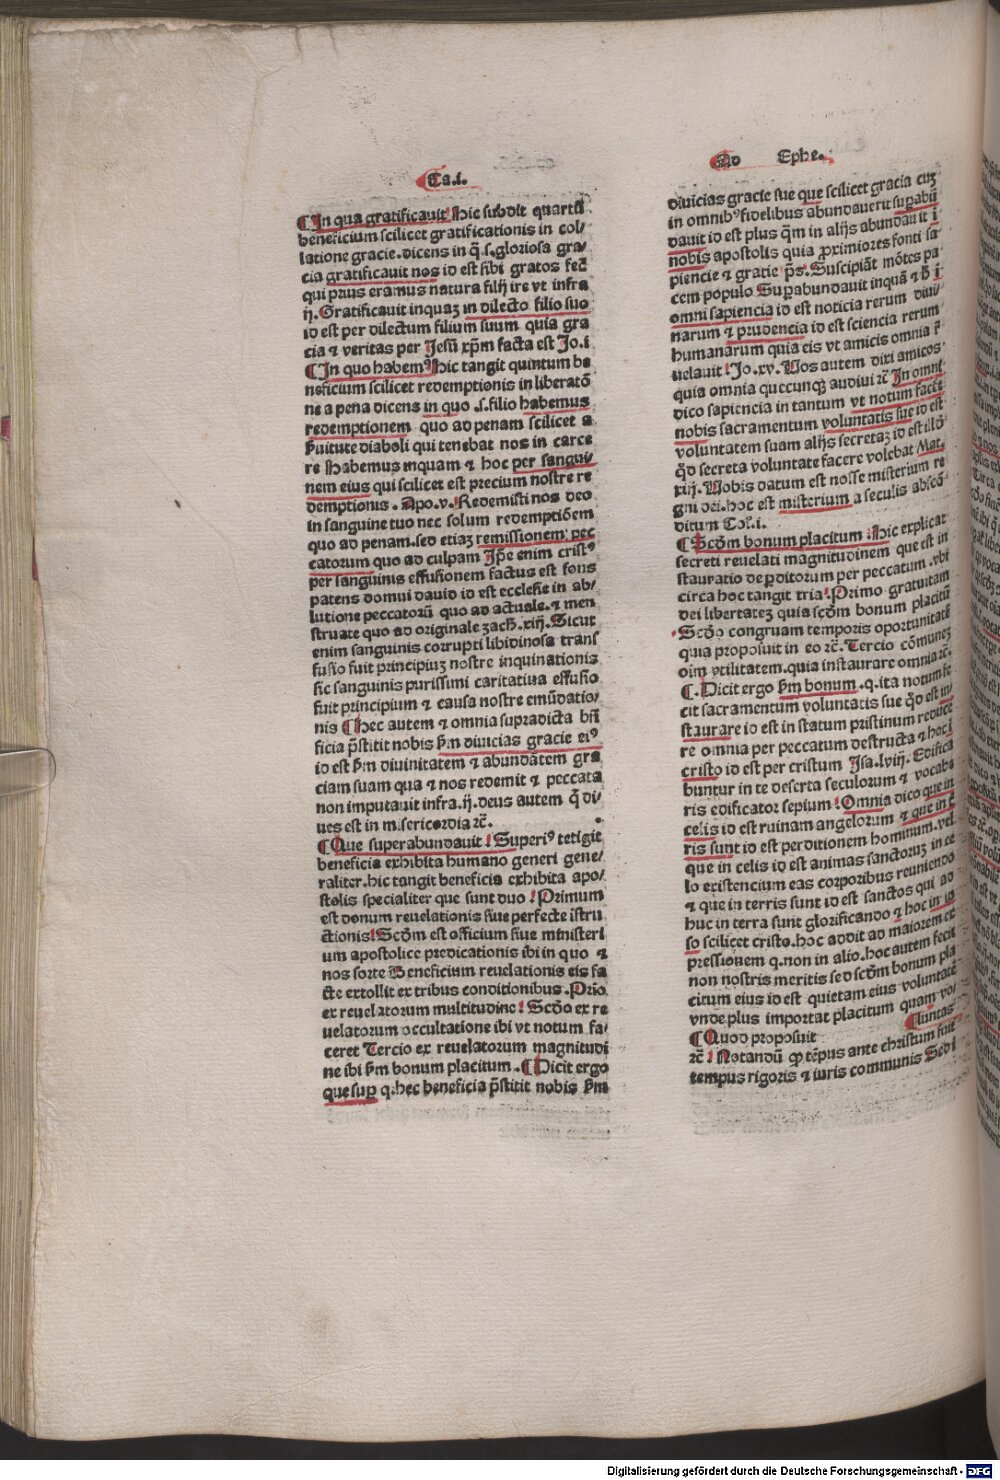 Ca.i.
¶In qua gratificauit! Hic subdit quartū
beneficium scilicet gratificationis in col/
latione gracie.dicens in q̄ .s.gloriosa gra/
cia gratificauit nos id est sibi gratos fec̄
qui prius eramus natura filij ire vt infra
ij. Gratificauit inquaʒ in dilecto filio suo
id est per dilectum filium suum quia gra
cia ⁊ veritas per Jesū xp̄m facta est Jo.i
¶In quo habemꝰ Hic tangit quintum be
neficium scilicet redemptionis in liberatō
ne a pena dicens in quo .s.filio habemus
redemptionem quo ad penam scilicet a
ẜuitute diaboli qui tenebat nos in carce
re Habemus inquam ⁊ hoc per sangui/
nem eius qui scilicet est precium nostre re
demptionis . Apo.v.!Redemisti nos deo
in sanguine tuo nec solum redemptiōem
quo ad penam.sed etiaʒ remissionem pec
catorum quo ad culpam Ip̄e enim cristꝰ
per sanguinis effusionem factus est fons
patens domui dauid id est ecclesie in ab/
lutione peccatorū quo ad actuale.⁊ men
struate quo ad originale zach̄.xiij.Sicut
enim sanguinis corrupti libidinosa trans
fusio fuit principiuʒ nostre inquinationis
sic sanguinis purissimi caritatiua effusio
fuit principium ⁊ causa nostre emūdatio/
nis ¶Hec autem ⁊ omnia supradicta bn̄
ficia p̄stitit nobis ẜm diuicias gracie eiꝰ
id est ẜm diuinitatem ⁊ abundātem gra
ciam suam qua ⁊ nos redemit ⁊ peccata
non imputauit infra.ij.deus autem q̄ di/
ues est in misericordia ⁊c̄.
¶Que superabundauit !Superiꝰ tetigit
beneficia exhibita humano generi gene/
raliter.hic tangit beneficia exhibita apo/
stolis specialiter que sunt duo !Primum
est donum reuelationis siue perfecte īstru
ctionis!Scōm est officium siue ministeri
um apostolice predicationis ibi in quo ⁊
nos sorte Beneficium reuelationis eis fa
cte extollit ex tribus conditionibus.Prīo
ex reuelatorum multitudine!Scōo ex re
uelatorum occultatione ibi vt notum fa/
ceret Tercio ex reuelatorum magnitudi
ne ibi ẜm bonum placitum.¶Dicit ergo
que suꝑ q.hec beneficia p̄stitit nobis ẜm
Ad Ephe.
diuicias gracie sue que scilicet gracia cuʒ
in omnibꝰ fidelibus abundauerit suꝑabū
dauit id est plus q̄m in alijs abundauit ī
nobis apostolis quia ꝓximiores fonti sa
piencie ⁊ gratie p̄s.Suscipiāt mōtes pa
cem populo Suꝑabundauit inquā ⁊ h̄ ī
omni sapiencia id est noticia rerum diui/
narum ⁊ prudencia id est sciencia rerum
humanarum quia eis vt amicis omnia r̄
uelauit !Jo.xv.Vos autem dixi amicos
quia omnia quecunqꝫ audiui ⁊c̄ In omni
dico sapiencia in tantum vt notum facēt
nobis sacramentum voluntatis sue id est
voluntatem suam alijs secretaʒ id est illō
q̄d secreta voluntate facere volebat Mat.
xiij.Vobis datum est nosse misterium re
gni dei.hoc est misterium a seculis abscō
ditum Col̄.i.
¶Scōm bonum placitum .Hic explicat
secreti reuelati magnitudinem que est in
stauratio deꝑditorum per peccatum.vbi
circa hoc tangit tria!Primo gratuitam
dei libertateʒ quia scōm bonum placitū
!Scōo congruam temporis oportunitatē
quia proposuit in eo ⁊c̄.Tercio cōmuneʒ
oīm vtilitatem.quia instaurare omnia ⁊c̄.
¶.Dicit ergo ẜm bonum.q.ita notum fe
cit sacramentum voluntatis sue q̄d est in/
staurare id est in statum pristinum reduce
re omnia per peccatum destructa ⁊ hoc ī
cristo id est per cristum Isa.lviij.Edifica
buntur in te deserta seculorum ⁊ vocabe
ris edificator sepium !Omnia dico que in
celis id est ruinam angelorum ⁊ que in t̄
ris sunt id est perditionem hominum.vel
que in celis id est animas sanctorum in ce
lo existencium eas corporibus reuniendo
⁊ que in terris sunt id est sanctos qui ad
huc in terra sunt glorificando ⁊ hoc in ip
so scilicet cristo.hoc addit ad maiorem ex
pressionem q.non in alio.hoc autem fecit
non nostris meritis sed scōm bonum pla
citum eius id est quietam eius voluntatē
vnde plus importat placitum quam vo/
¶luntas
¶Quod proposuit
⁊c̄ !Notandū ꝙ tēpus ante christum fuit
tempus rigoris ⁊ iuris communis Sed i
Digitalisierung gefördert durch die Deutsche Forschungsgemeinschaft - DFG